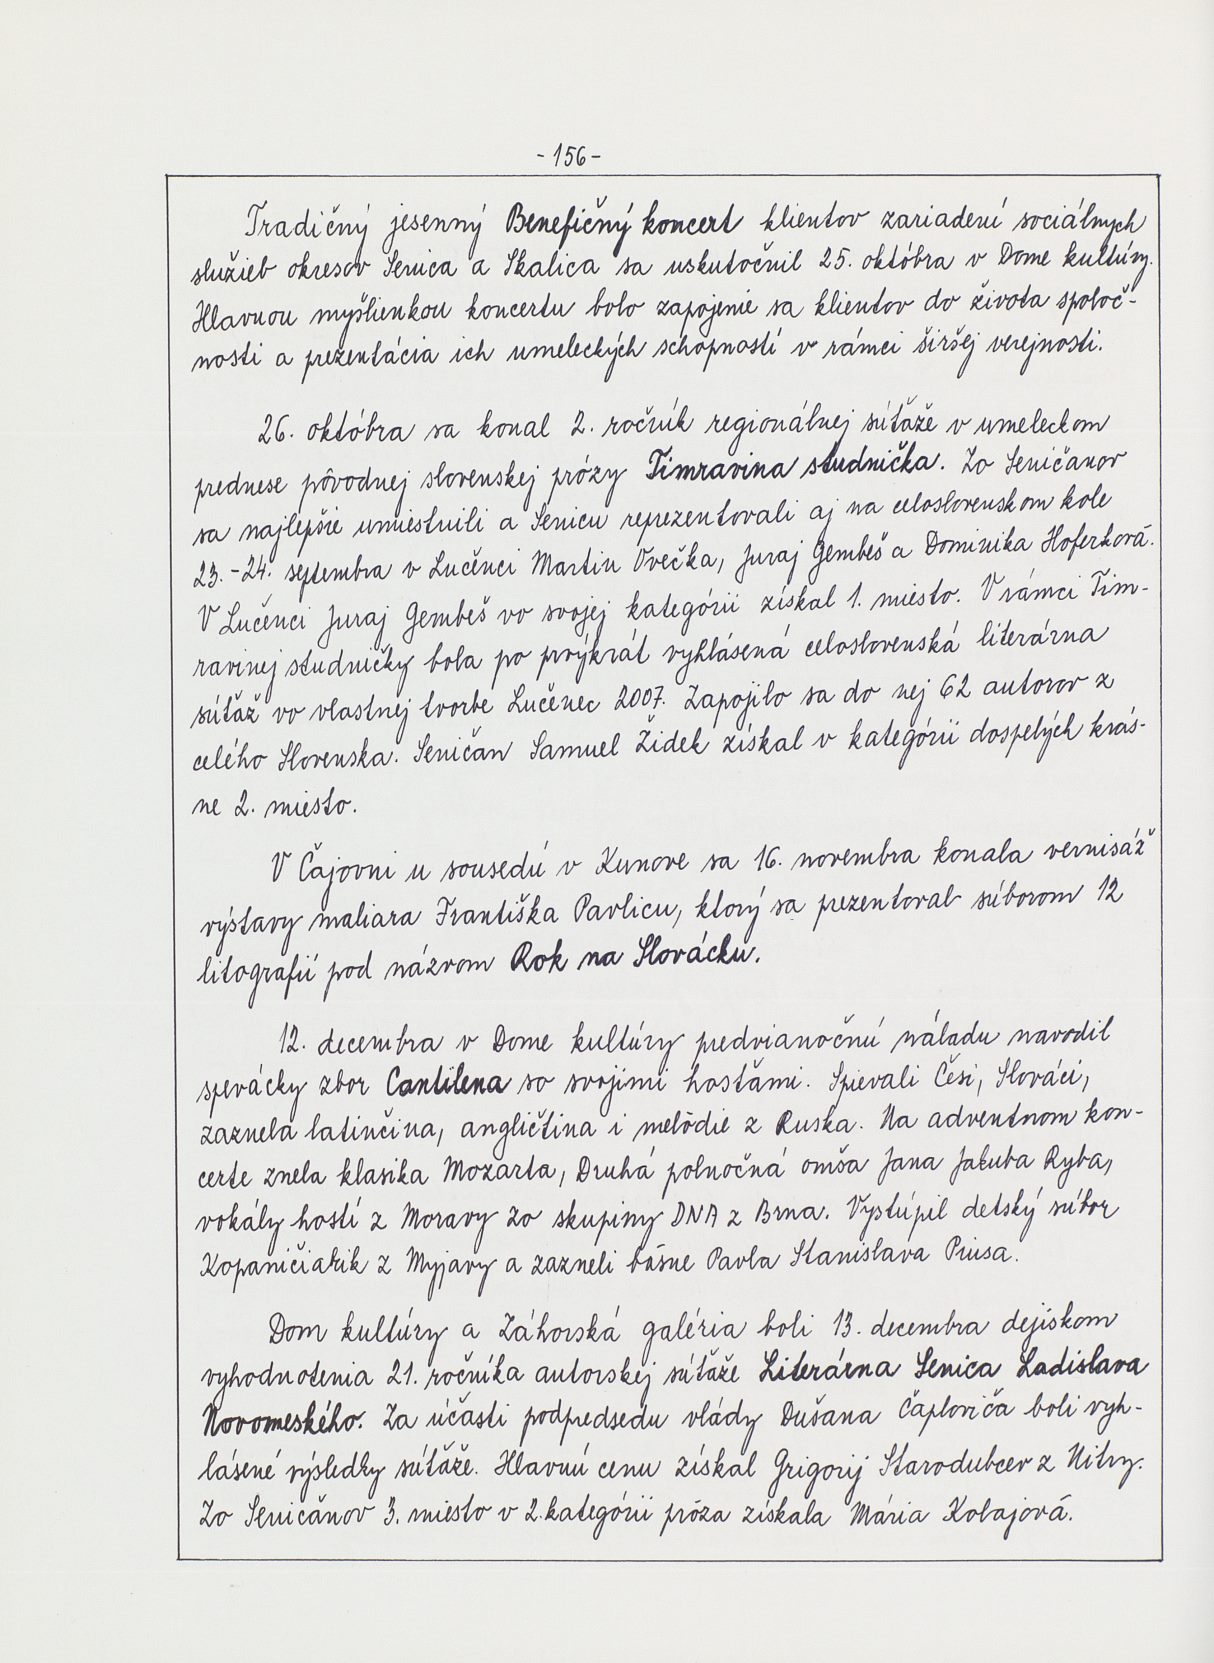 - 156 -
Tradičný jesenný Benefičný koncert klientov zariadení sociálnych
služieb okresov Senica a Skalica sa uskutočnil 25. októbra v Dome kultúry.
Hlavnou myšlienkou koncertu bolo zapojenie sa klientov do života spoloč-
nosti a prezentácia ich umeleckých schopností v rámci širšej verejnosti.
26. októbra sa konal 2. ročník regionálnej súťaže v umeleckom
prednese pôvodnej slovenskej prózy Timravina studnička. Zo Seničanov
sa najlepšie umiestnili a Senicu reprezentovali aj na celoslovenskom kole
23.-24. septembra v Lučenci Martin Ovečka, Juraj Gembeš a Dominika Hoferková.
V Lučenci Juraj Gembeš vo svojej kategórii získal 1. miesto. V rámci Tim-
ravinej studničky bola po prvýkrát vyhlásená celoslovenská literárna
súťaž vo vlastnej tvorbe Lučenec 2007. Zapojilo sa do nej 62 autorov z
celého Slovenska. Seničan Samuel Židek získal v kategórii dospelých krás-
ne 2. miesto.
V Čajovni u sousedú v Kunove sa 16. novembra konala vernisáž
výstavy maliara Františka Pavlicu, ktorý sa prezentoval súborom 12
litografií pod názvom Rok na Slovácku.
12. decembra v Dome kultúry predvianočnú náladu navodil
spevácky zbor Cantilena so svojimi hosťami. Spievali Česi, Slováci,
zaznela latinčina, angličtina i melódie z Ruska. Na adventnom kon-
certe znela klasika Mozarta, Druhá polnočná omša Jana Jakuba Ryba,
vokály hostí z Moravy zo skupiny DNA z Brna. Vystúpil detský súbor
Kopaničiarik z Myjavy a zazneli básne Pavla Stanislava Piusa.
Dom kultúry a Záhorská galéria boli 13. decembra dejiskom
vyhodnotenia 21. ročníka autorskej súťaže Literárna Senica Ladislava
Novomeského. Za účasti podpredsedu vlády Dušana Čaploviča boli vyh-
lásené výsledky súťaže. Hlavnú cenu získal Grigorij Starodubcev z Nitry.
Zo Seničanov 3. miesto v 2.kategórii próza získala Mária Kobajová.